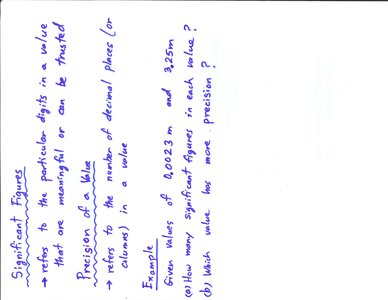 Significant Figures
→ refers to the particular digits in a value
that are meaningful or can be trusted
Precision of a Value
→ refers to the number of decimal places (or
columns) in a value
Example
Given values of 0.0023 m and 3.25 m
(a) How many significant figures in each value?
(b) Which value has more precision?